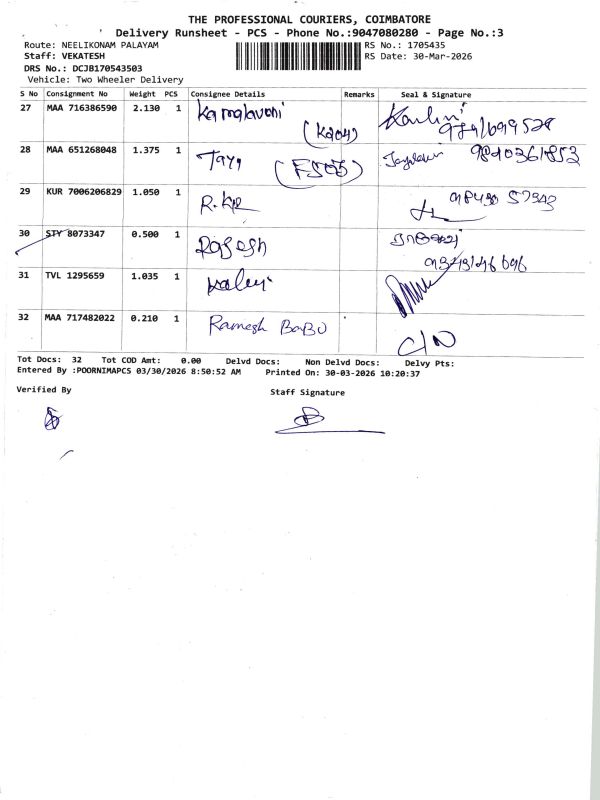 THE PROFESSIONAL COURIERS, COIMBATORE
Delivery Runsheet - PCS - Phone No.:9047080280 - Page No.:3
Route: NEELIKONAM PALAYAM
RS No.: 1705435
Staff: VEKATESH
RS Date: 30-Mar-2026
DRS No.: DCJB170543503
Vehicle: Two Wheeler Delivery
S No Consignment No Weight PCS Consignee Details Remarks Seal & Signature
27 MAA 716386590 2.130 1 (K204)
28 MAA 651268048 1.375 1 (F505) 9840361853
29 KUR 7006206829 1.050 1
30 STY 8073347 0.500 1 Rajesh
31 TVL 1295659 1.035 1
32 MAA 717482022 0.210 1 Ramesh BaBU C/N
Tot Docs: 32 Tot COD Amt: 0.00 Delvd Docs: Non Delvd Docs: Delvy Pts:
Entered By :POORNIMAPCS 03/30/2026 8:50:52 AM Printed On: 30-03-2026 10:20:37
Verified By Staff Signature